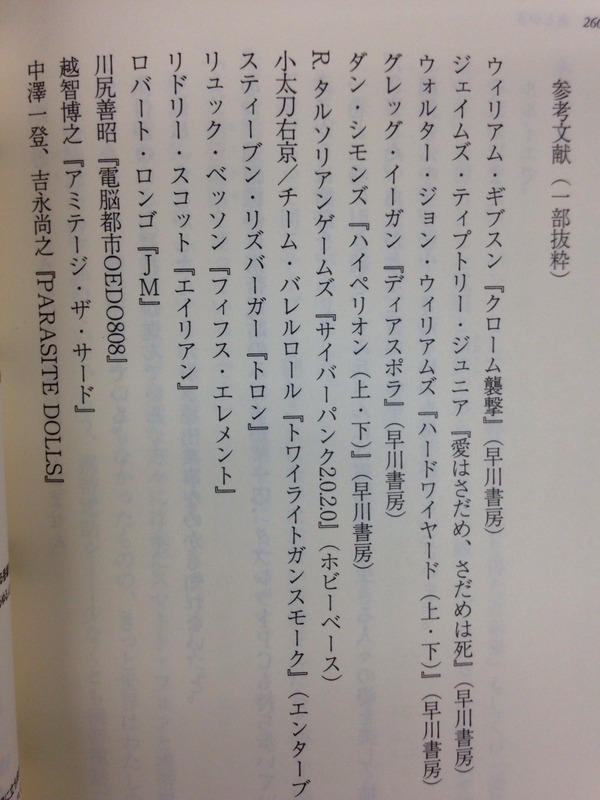 260
参考文献（一部抜粋）
ウィリアム・ギブスン『クローム襲撃』（早川書房）
ジェイムズ・ティプトリー・ジュニア『愛はさだめ、さだめは死』（早川書房）
ウォルター・ジョン・ウィリアムズ『ハードワイヤード（上・下）』（早川書房）
グレッグ・イーガン『ディアスポラ』（早川書房）
ダン・シモンズ『ハイペリオン（上・下）』（早川書房）
R. タルソリアンゲームズ『サイバーパンク2.0.2.0』（ホビーベース）
小太刀右京／チーム・バレルロール『トワイライトガンスモーク』（エンターブ
スティーブン・リズバーガー『トロン』
リュック・ベッソン『フィフス・エレメント』
リドリー・スコット『エイリアン』
ロバート・ロンゴ『JM』
川尻善昭『電脳都市OEDO808』
越智博之『アミテージ・ザ・サード』
中澤一登、吉永尚之『PARASITE DOLLS』